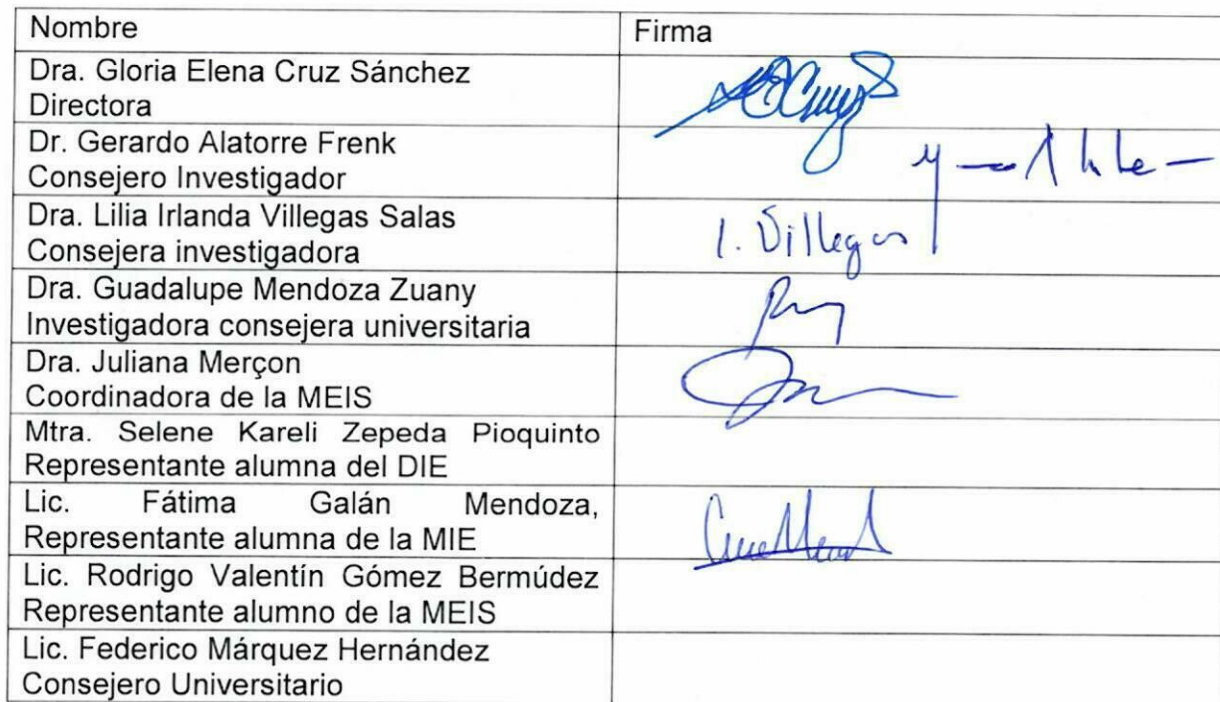 Nombre Firma
Dra. Gloria Elena Cruz Sánchez
Directora
Dr. Gerardo Alatorre Frenk
Consejero Investigador
Dra. Lilia Irlanda Villegas Salas
Consejera investigadora
I. Villegas
Dra. Guadalupe Mendoza Zuany
Investigadora consejera universitaria
Dra. Juliana Merçon
Coordinadora de la MEIS
Mtra. Selene Kareli Zepeda Pioquinto
Representante alumna del DIE
Lic. Fátima Galán Mendoza,
Representante alumna de la MIE
Lic. Rodrigo Valentín Gómez Bermúdez
Representante alumno de la MEIS
Lic. Federico Márquez Hernández
Consejero Universitario